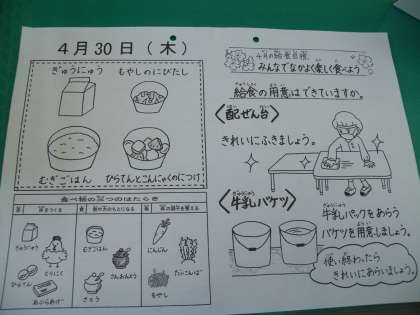 4月30日(木)
ぎゅうにゅう
もやしのにびたし
むぎごはん
ひらてんとこんにゃくのにつけ
食べ物の三つのはたらき
体をつくる
熱や力のもとになる
体の調子を整える
ぎゅうにゅう
とりにく
ひらてん
あぶらあげ
むぎごはん
さんおんとう
さとう
にんじん
もやし
4月の給食目標
みんなでなかよく楽しく食べよう
給食の用意はできていますか。
〈配ぜん台〉
きれいにふきましょう。
〈牛乳バケツ〉
牛乳パックをあらう
バケツを用意しましょう。
使い終わったら
きれいにあらいましょう。